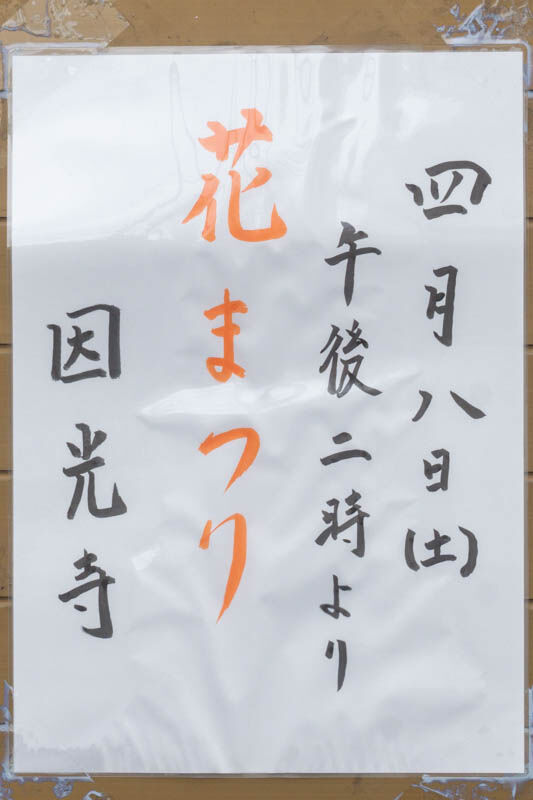 四月八日(土)
午後二時より
花まつり
因光寺